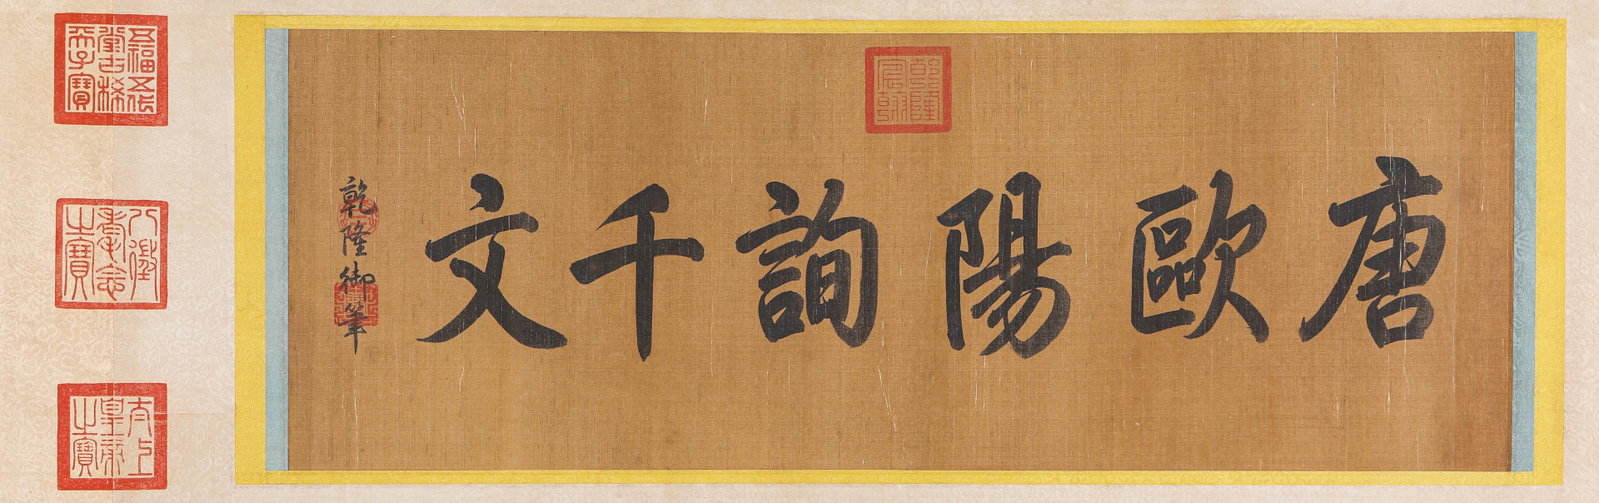 唐歐陽詢千文
乾隆御筆
乾隆宸翰
五福五代堂古稀天子寶
八徵耄念之寶
太上皇帝之寶